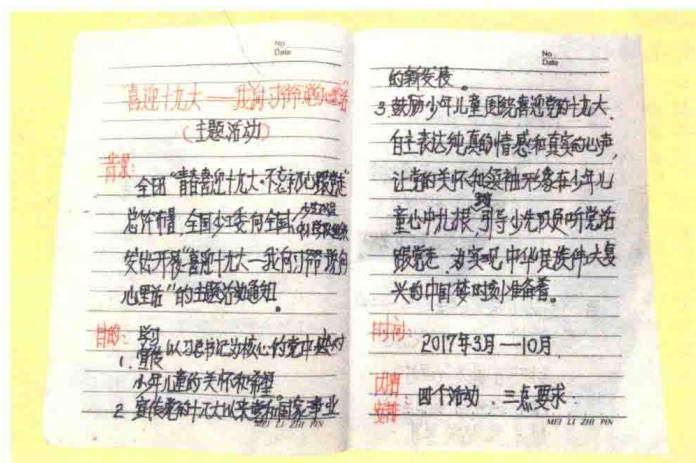 No
Date
喜迎十九大——我向习爷爷说句心里话"
(主题活动)
背景:
全团"青春喜迎十九大·不忘初心跟党走"
总体部署,全国少工委向全国
发出开展"喜迎十九大—我向习爷爷说句
心里话"的主题活动通知。
目的:学习
1. 宣传以习总书记为核心的党中央对
少年儿童的关怀和希望
2 宣传党的十八大以来党和国家事业
MEI LI ZHI PIN
No
Date
的新发展。
3.鼓励少年儿童围绕喜迎党的十九大,
自主表达纯真的情感和真实的心声,
让党的关怀和领袖形象在少年儿
童心中扎根,引导少先队员听党话
跟党走,为实现中华民族伟大复
兴的中国梦时刻准备着。
时间:
2017年3月—10月
内容
安排:四个活动、三点要求
MEI LI ZHI PIN